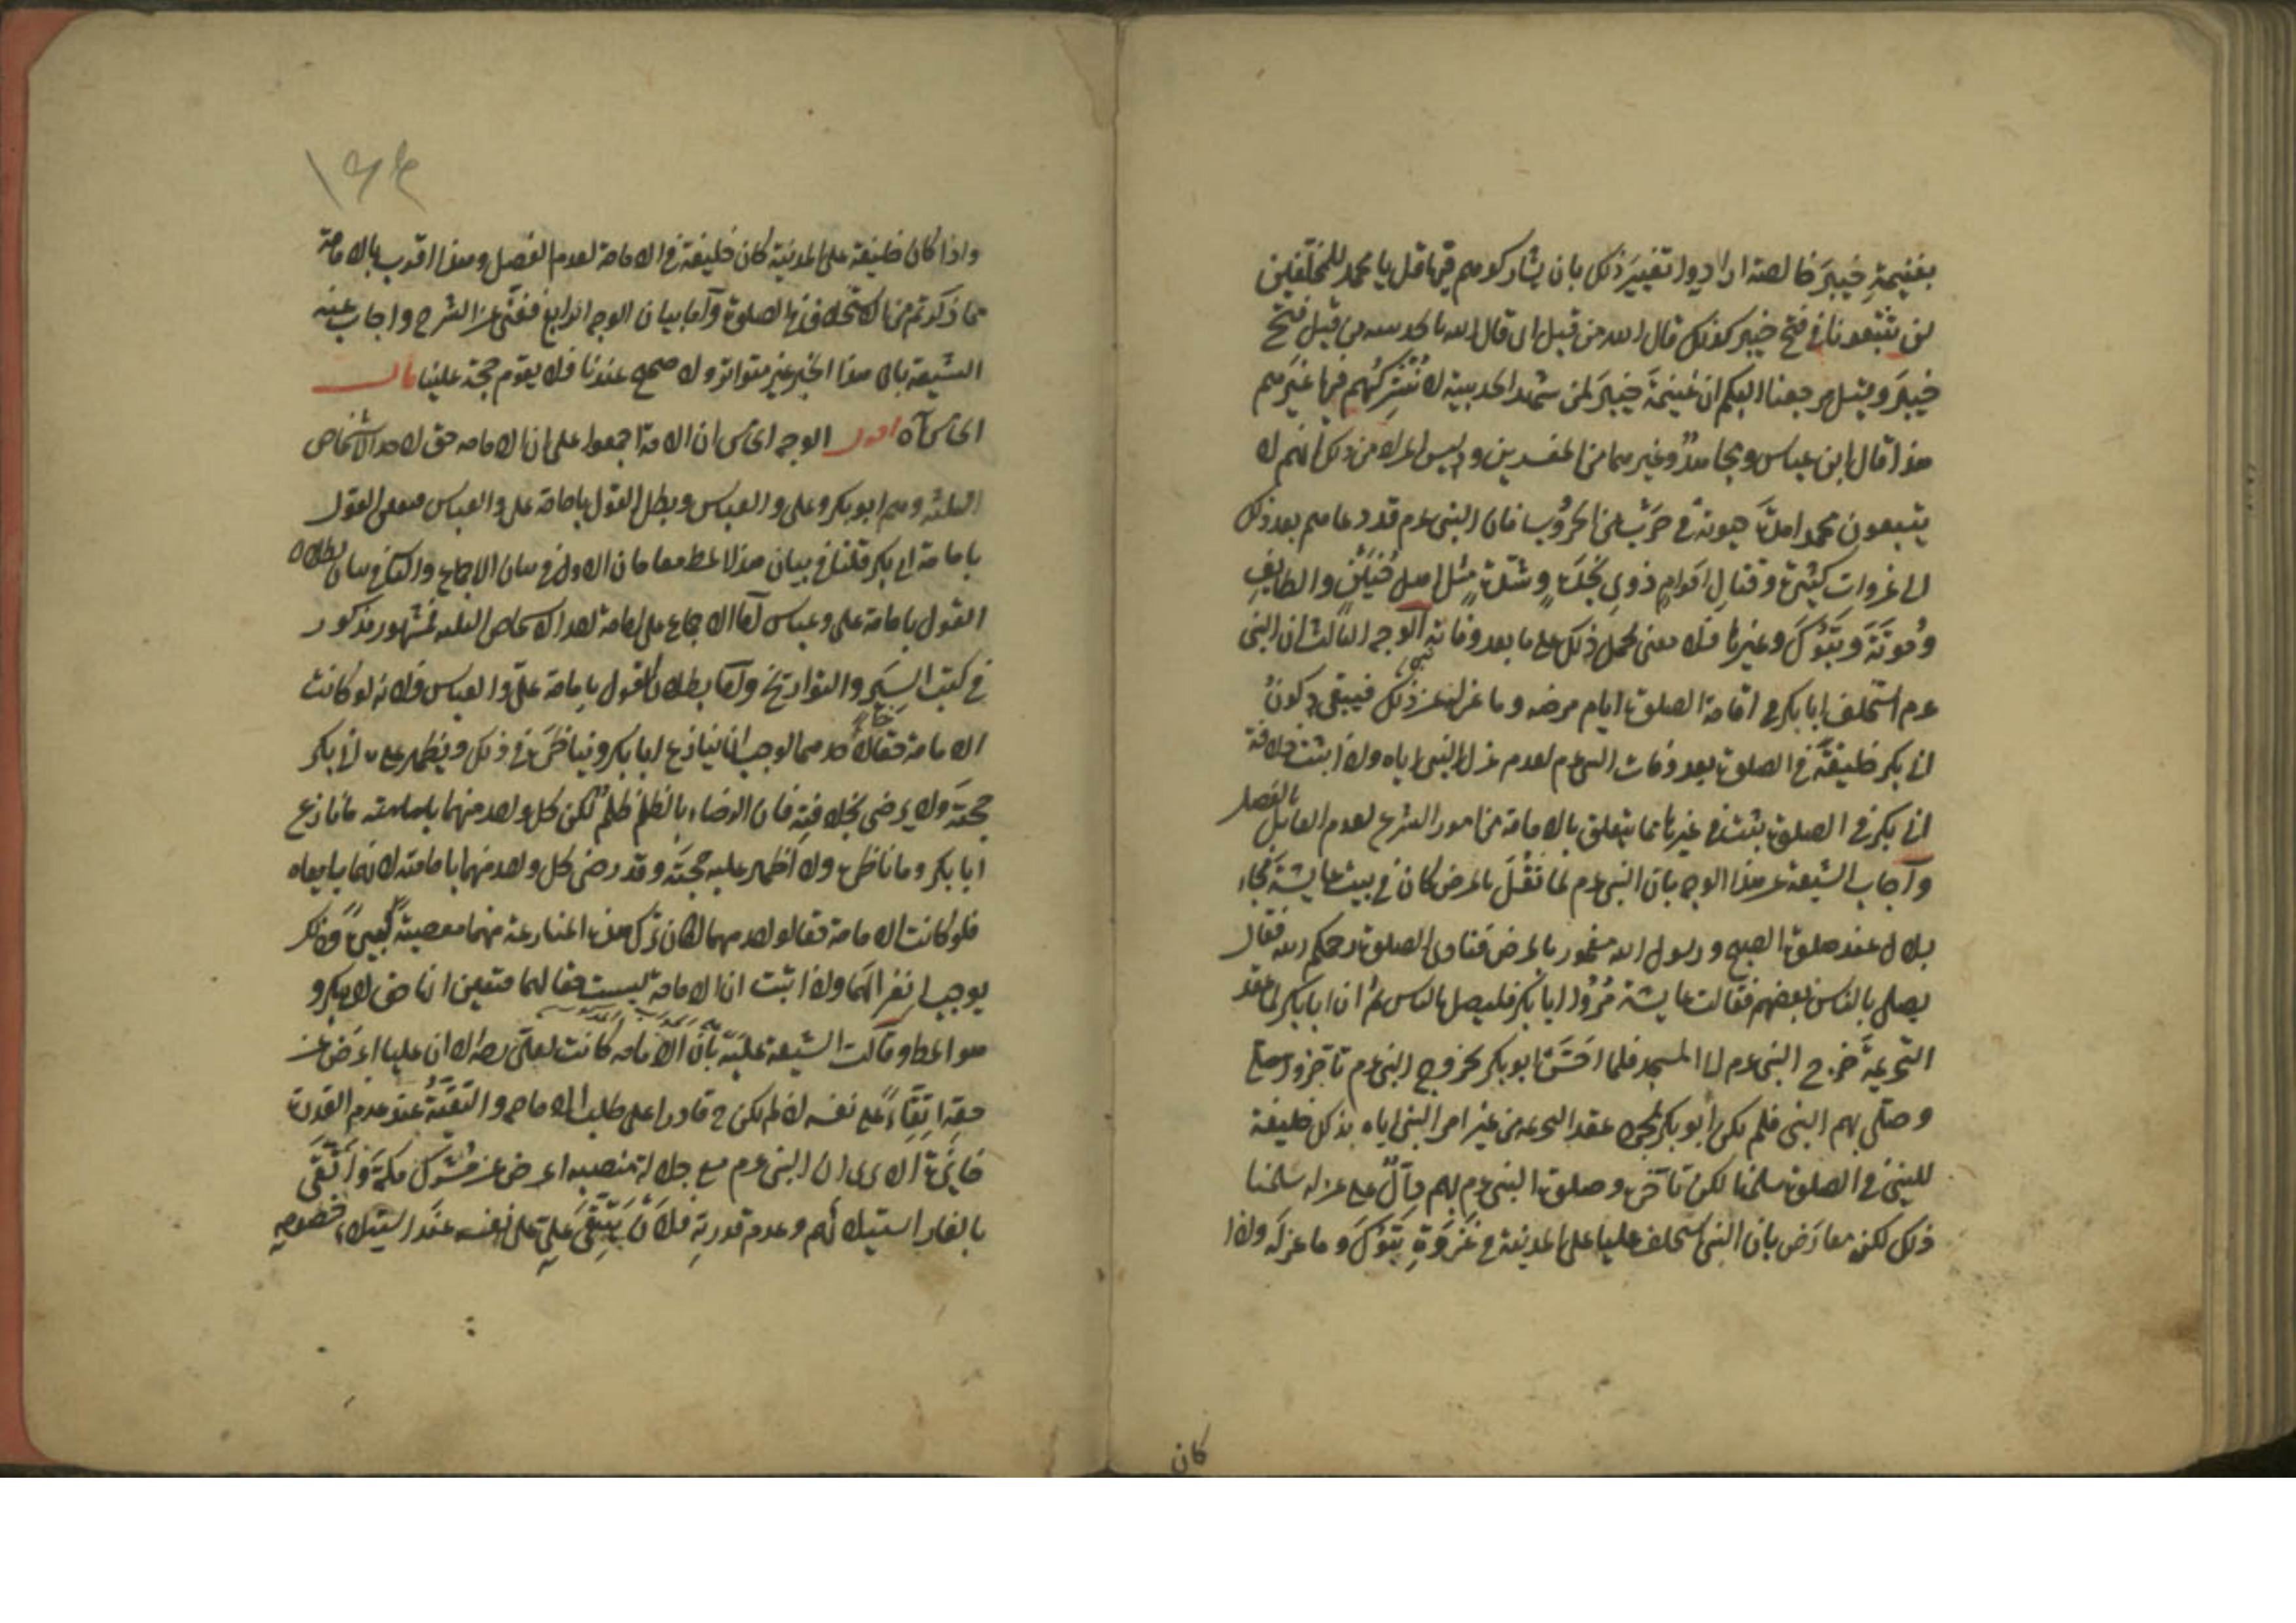 بغنيمةِ خيبرَ خالصة ارادوا تغييرَ ذلك بان يشاركوهم فيها قل يا محمد للمخلّفين
لن تتبعونا في فتح خيبر كذلك قال الله من قبل اى قال الله بالحديبيه من قبل فتح
خيبرَ وقبل مرجعنا اليكم ان غنيمةَ خيبرَ لمن شهد الحديبية لا نُشركهم فيها غيرهم
هذا قال ابن عباس ومجاهدٌ وغيرهما من المفسرين وليس المراد من ذلك انهم لا
يتبعون محمدا مدّة حيوته في حرب من الحروب فان النبى عم قد دعاهم بعد ذلك
الى غزوات كثيرة وقتال اقوامٍ ذوى نجدة وشدّة مثل اهل حُنَينٍ والطايف
ومُوتَةَ وتبُوكَ وغيرها فلا معنى لحمل ذلك على ما بعد وفاته الوجه الثالث ان النبى
عم استخلف ابا بكر في اقامة الصلوة ايام مرضه وما عزله عن ذلك فيبقى كونُ
ابى بكر خليفةً في الصلوة بعد وفات النبى عم لعدم عزل النبى اياه واذا ثبت خلافة
ابى بكر في الصلوة ثبت في غيرها مما يتعلق بالامامة من امور الشرع لعدم القايل
بالفصل
وآجاب الشيعة عن هذا الوجه بان النبى عم لما ثقُلَ بالمرض كان في بيت عايشةَ فجاء
بلال عند صلوة الصبح ورسول الله مغمور بالمرض فنادى الصلوة رحمكم الله فقال
يصلى بالناس بعضهم فقالت عايشة مُرُوا ابا بكر فليصل بالناس ثم ان ابا بكر لما عقد
التحريمةَ خرج النبى عم الى المسجد فلما احَسَّ ابو بكر بخروج النبى عم تأخر
وصلّى بهم النبى فلم يكن ابو بكر بمجرد عقد التحريمه من غير امر النبى اياه بذلك خليفة
للنبى في الصلوة سلمنا لكن تأخره وصلوة النبى عم بهم دالّ على عزله سلمنا
ذلك لكنه معارَض بان النبى استخلف عليا على المدينة في غَزوَةِ تبُوكَ وما عزله واذا
كان
١٦٤
واذا كان خليفة على المدينة كان خليفة في الامامة لعدم الفصل وهذا اقرب بالامامة
مما ذكرتم من استخلافه في الصلوة وآما بيان الوجه الرابع فغنىّ عن الشرح واجاب عنه
الشيعة بان هذا الخبر غير متواتر ولا صحيح عندنا فلا يقوم حجة علينا قال
الخامس آه اقول الوجه الخامس ان الامة اجمعوا على ان الامامه حق لاحد الاشخاص
الثلثة وهم ابو بكر وعلى والعباس وبطل القول بامامة على والعباس فبقى القول
بامامة ابى بكر قلنا في بيان هذا المط مقامان الاول في بيان الاجماع والثانى في بيان بطلان
القول بامامة على وعباس آما الاجماع على امامة احد الاشخاص الثلثه فمشهور مذكور
في كتب السِيَر والتواريخ وآما بطلان القول بامامة علىّ والعباس فلانه لو كانت
الامامة حقا لاحدهما لوجب ان ينازع ابا بكر ويناظرَه في ذلك ويظهر على ابى بكر
حجته ولا يرضى بخلافته فان الرضاء بالظلم ظلمٌ لكن كل واحد منهما ما نازع
ابا بكر وما ناظره ولا اظهر عليه حجتَه وقد رضى كل واحد منهما بامامته لانهما بايعاه
فلو كانت الامامة حقا لواحد منهما لكان ترك هذه المنازعة منهما معصيةً كبيرةً وذلك
يوجب انعزالهما واذا ثبت ان الامامة ليست حقا لهما فتعين انها حق لابى بكر و
هو المط وقالت الشيعة عليه بأن الامامه كانت لعلىّ الا ان عليا اعرَض عن
حقه اتِّقاءً على نفسه لانه لم يكن قادرا على طلب الامامة والتَقيّةُ عند عدم القدرة
جايزة الا يرى ان النبى عم مع جلالة منصبه اعرض عن مشركى مكة واتّقَى
بالغار استيلائهم وعدم قدرته فلأن يتّقىَ علىّ على نفسه عند استيلاء خصومه